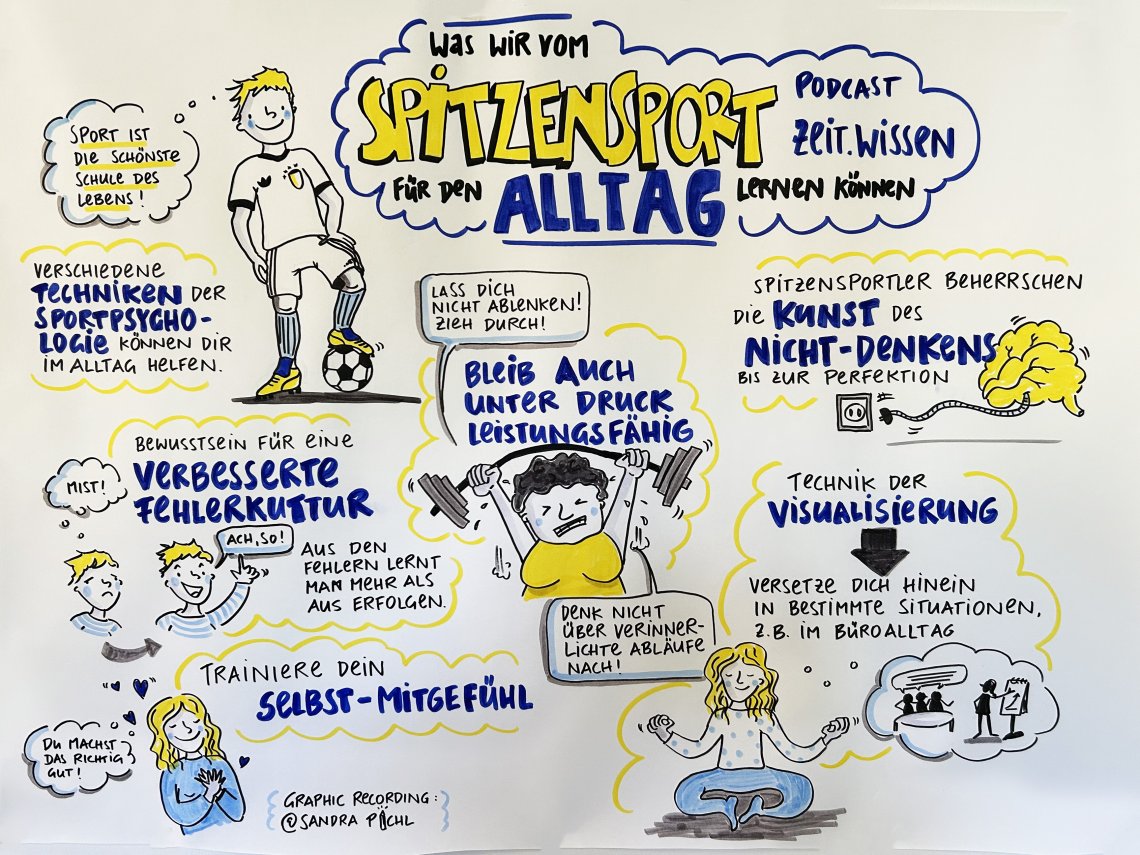 WAS WIR VOM
SPITZENSPORT
FÜR DEN ALLTAG LERNEN KÖNNEN
PODCAST
ZEIT.WISSEN
SPORT IST
DIE SCHÖNSTE
SCHULE DES
LEBENS!
VERSCHIEDENE
TECHNIKEN DER
SPORTPSYCHO-
LOGIE KÖNNEN DIR
IM ALLTAG HELFEN.
LASS DICH
NICHT ABLENKEN!
ZIEH DURCH!
BLEIB AUCH
UNTER DRUCK
LEISTUNGSFÄHIG
DENK NICHT
ÜBER VERINNER-
LICHTE ABLÄUFE
NACH!
SPITZENSPORTLER BEHERRSCHEN
DIE KUNST DES
NICHT-DENKENS
BIS ZUR PERFEKTION
BEWUSSTSEIN FÜR EINE
VERBESSERTE
FEHLERKUTTUR
MIST!
ACH, SO!
AUS DEN
FEHLERN LERNT
MAN MEHR ALS
AUS ERFOLGEN.
TECHNIK DER
VISUALISIERUNG
VERSETZE DICH HINEIN
IN BESTIMMTE SITUATIONEN,
Z.B. IM BÜROALLTAG
TRAINIERE DEIN
SELBST-MITGEFÜHL
DU MACHST
DAS RICHTIG
GUT!
GRAPHIC RECORDING:
@SANDRA PÜCHL